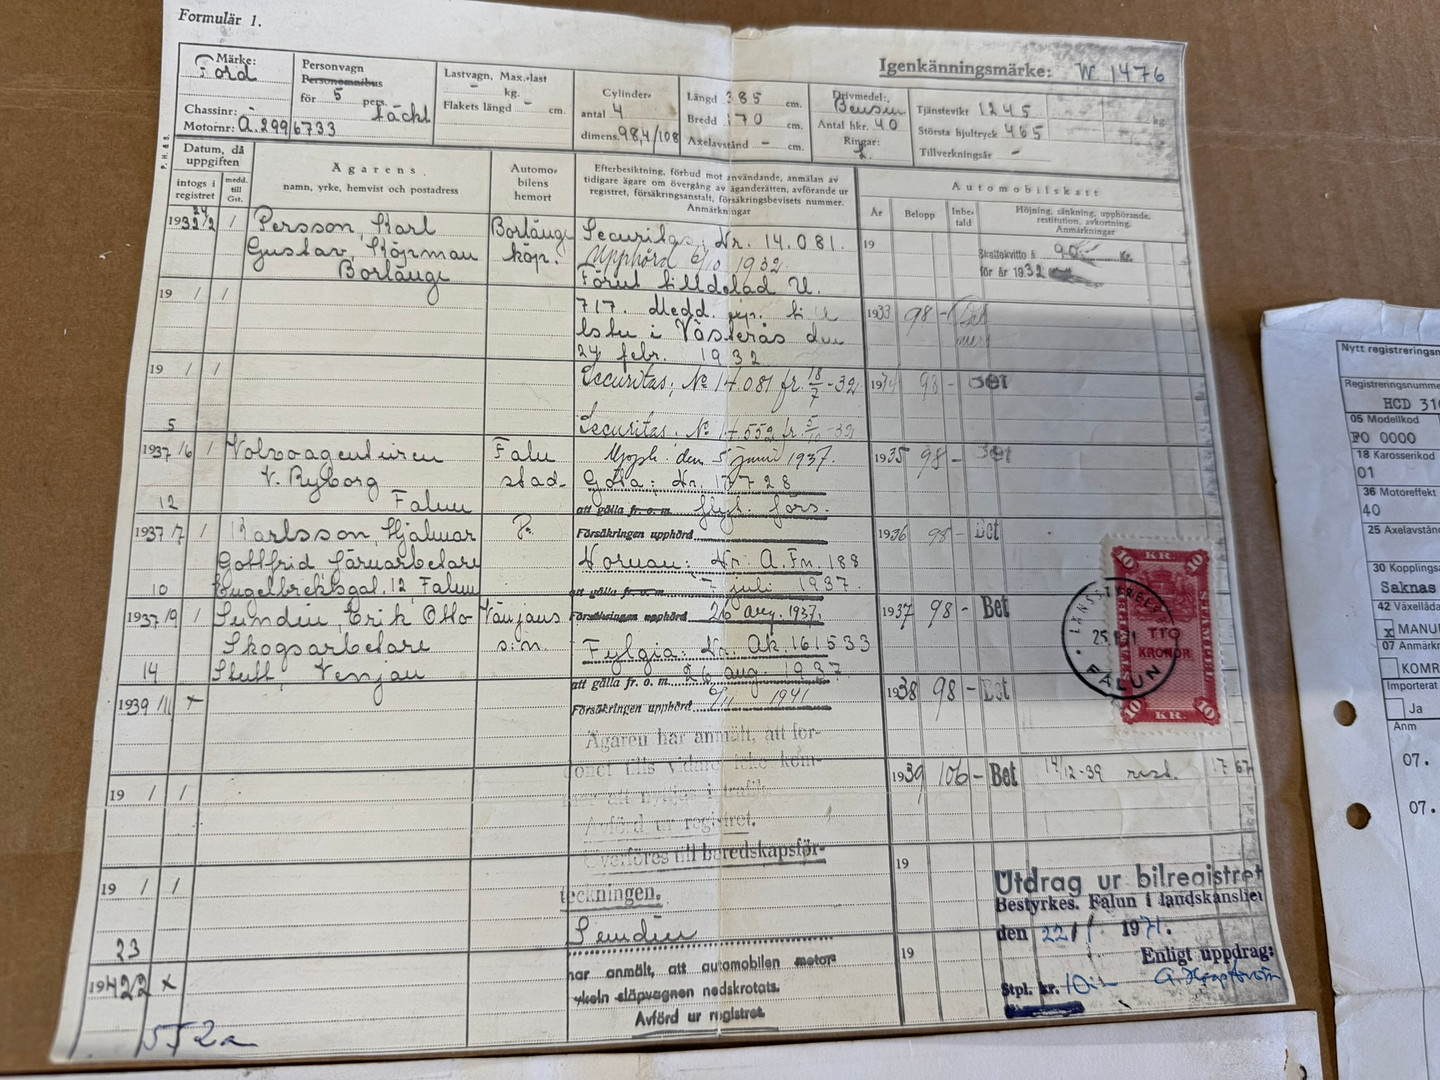 Formulär 1.
Igenkänningsmärke: W 1476
Märke:
Ford
Chassinr:
Motornr: A.2996733
Personvagn
Personomnibus
för 5 pers.
täckt
Lastvagn, Max.-last
- kg.
Flakets längd - cm.
Cylinder-
antal 4
dimens. 98,4/108
Längd 385 cm.
Bredd 170 cm.
Axelavstånd - cm.
Drivmedel:
Bensin
Antal hkr. 40
Ringar:
Tjänstevikt 1245 kg
Största hjultryck 465
Tillverkningsår -
Datum, då
uppgiften
intogs i
registret
medd.
till
Gst.
Ägarens
namn, yrke, hemvist och postadress
Automo-
bilens
hemort
Efterbesiktning, förbud mot användande, anmälan av
tidigare ägare om övergång av äganderätten, avförande ur
registret, försäkringsanstalt, försäkringsbevisets nummer.
Anmärkningar
Automobilskatt
År Belopp Inbe-
tald
Höjning, sänkning, upphörande,
restitution, avkortning.
Anmärkningar
24
1932/2 /
Persson, Karl
Gustav, Köpman
Borlänge
Borlänge
köp.
Securitas, Nr. 14.081.
Upphörd 6/10 1932
Förut tilldelad U.
19
Skattekvitto å 90 Kr.
för år 1932
19 / /
717. Medd.
lstn i Västerås den
24 febr. 1932
1933 98 -
19 / /
Securitas, No 14.081 fr. 18/7 -32
Securitas, No 14.552 fr.
1934 98 - Bet
5
1937/6 /
Volvoagenturen
V. Ryborg
Falun
Falu
stad
Upph. den 5 juni 1937.
Göta: Nr. 17728
att gälla fr. o. m. flytt. förs.
1935 98 - Bet
12
1937/7 /
Karlsson, Hjalmar
Gottfrid Järnarbetare
Engelbrektsgat. 12, Falun
Försäkringen upphörd
Nornan: Nr. A.Fn. 188
att gälla fr. o. m. 7 juli 1937.
1936 98 - Bet
10
1937/9 /
Sundin, Erik Otto
Skogsarbetare
Venjan
Vänjans
s:n.
Försäkringen upphörd 26 aug. 1937.
Fylgia: Nr. Ak.161533
att gälla fr. o. m. 26 aug. 1937
Försäkringen upphörd 6/11 1941
1937 98 - Bet
14
1939/11 x
1938 98 - Bet
Ägaren har anmält, att for-
donet tills vidare icke kom-
mer att nyttjas i trafik.
Avförd ur registret.
Överföres till beredskapsför-
teckningen.
1939 106 - Bet 14/12-39 rest. 17 67
19 / /
19 / /
19
Sundin
har anmält, att automobilen motor-
cykeln släpvagnen nedskrotats.
Avförd ur registret
23
1942/2 x
19
552
10 KR. 10
STÄMPEL
BELAGD
TIO
KRONOR
10 KR. 10
LÄNSSTYRELSEN
25.1.71
FALUN
Utdrag ur bilregistret
Bestyrkes. Falun i landskansliet
den 22/1 1971.
Enligt uppdrag:
Stpl. kr. 10:-
Nytt registreringsn
Registreringsnumme
HCD 31
05 Modellkod
FO 0000
18 Karosserikod
01
36 Motoreffekt
40
25 Axelavstånd
30 Kopplingsa
Saknas
42 Växellåda
x MANU
07 Anmärkn
KOMR
Importerat
Ja
Anm
07.
07.